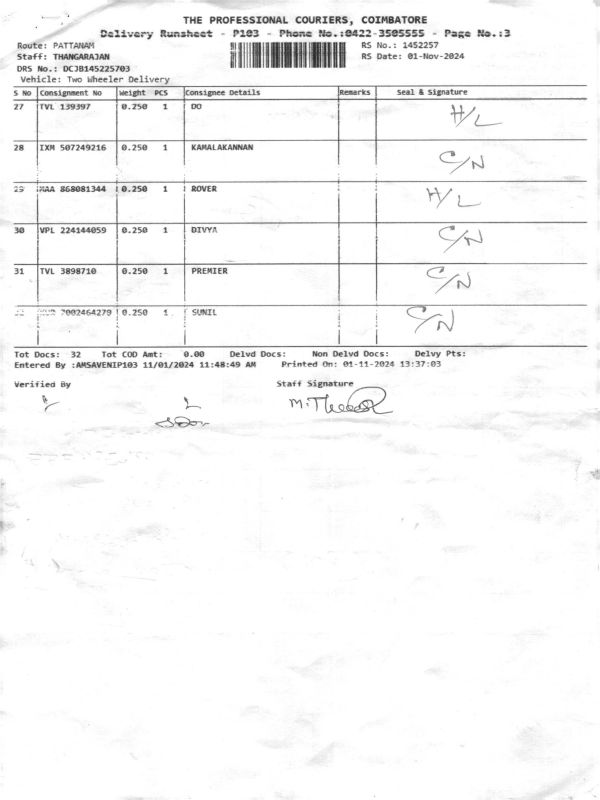 THE PROFESSIONAL COURIERS, COIMBATORE
Delivery Runsheet - P103 - Phone No.:0422-3505555 - Page No.:3
Route: PATTANAM RS No.: 1452257
Staff: THANGARAJAN RS Date: 01-Nov-2024
DRS No.: DCJB145225703
Vehicle: Two Wheeler Delivery
S No Consignment No Weight PCS Consignee Details Remarks Seal & Signature
27 TVL 139397 0.250 1 DO H/L
28 IXM 507249216 0.250 1 KAMALAKANNAN C/N
29 MAA 868081344 0.250 1 ROVER H/L
30 VPL 224144059 0.250 1 DIVYA C/N
31 TVL 3898710 0.250 1 PREMIER C/N
7002464279 0.250 1 SUNIL C/N
Tot Docs: 32 Tot COD Amt: 0.00 Delvd Docs: Non Delvd Docs: Delvy Pts:
Entered By :AMSAVENIP103 11/01/2024 11:48:49 AM Printed On: 01-11-2024 13:37:03
Verified By Staff Signature